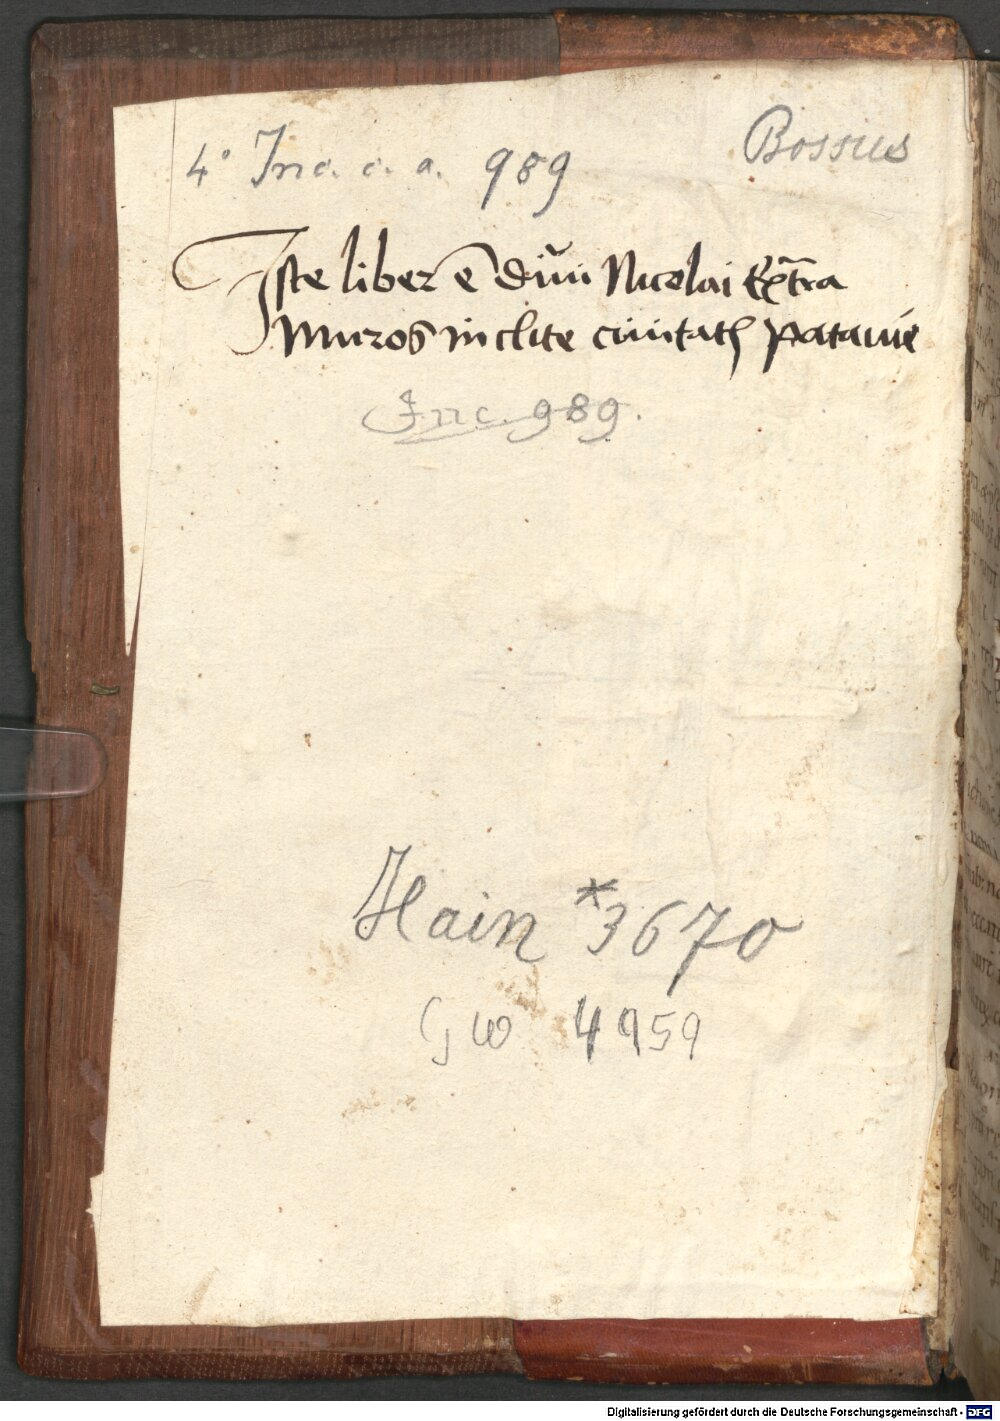 4° Inc. c. a. 989
Bossus
Iste liber ē diui Nicolai Extra
Muros inclite ciuitatis patauie
Inc. 989.
Hain *3670
GW 4959
Digitalisierung gefördert durch die Deutsche Forschungsgemeinschaft - DFG